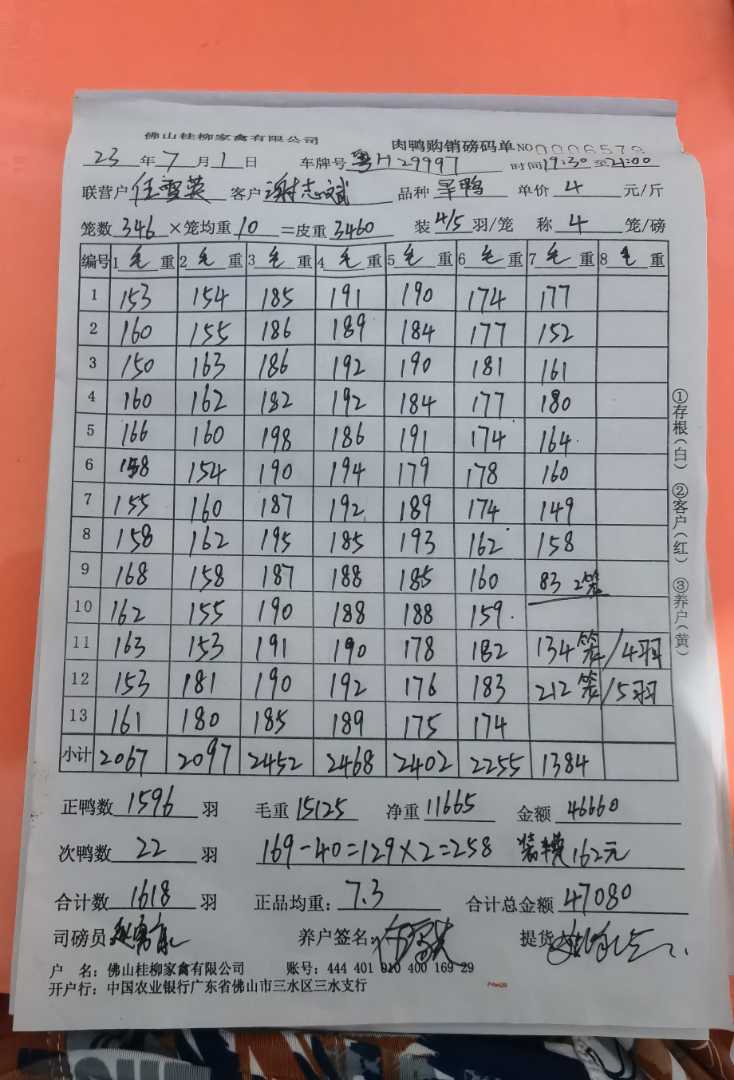 佛山桂柳家禽有限公司 肉鸭购销磅码单 NO 0006578
23 年 7 月 1 日 车牌号 粤H29997 时间 19:30 至 21:00
联营户 任雪英 客户 谢志斌 品种 旱鸭 单价 4 元/斤
笼数 346 ×笼均重 10 =皮重 3460 装 4/5 羽/笼 称 4 笼/磅
编号 1 毛 重 2 毛 重 3 毛 重 4 毛 重 5 毛 重 6 毛 重 7 毛 重 8 毛 重
1 153 154 185 191 190 174 177
2 160 155 186 189 184 177 152
3 150 163 186 192 190 181 161
4 160 162 182 192 184 177 180
5 166 160 198 186 191 174 164
6 158 154 190 194 179 178 160
7 155 160 187 192 189 174 149
8 158 162 195 185 193 162 158
9 168 158 187 188 185 160 83 2笼
10 162 155 190 188 188 159
11 163 153 191 190 178 182 134笼/4羽
12 153 181 190 192 176 183 212笼/5羽
13 161 180 185 189 175 174
小计 2067 2097 2452 2468 2402 2255 1384
正鸭数 1596 羽 毛重 15125 净重 11665 金额 46660
次鸭数 22 羽 169-40=129×2=258 装车费162元
合计数 1618 羽 正品均重: 7.3 合计总金额 47080
司磅员 养户签名: 提货
户 名: 佛山桂柳家禽有限公司 账号: 444 401 010 400 169 29
开户行: 中国农业银行广东省佛山市三水区三水支行
①存根(白) ②客户(红) ③养户(黄)